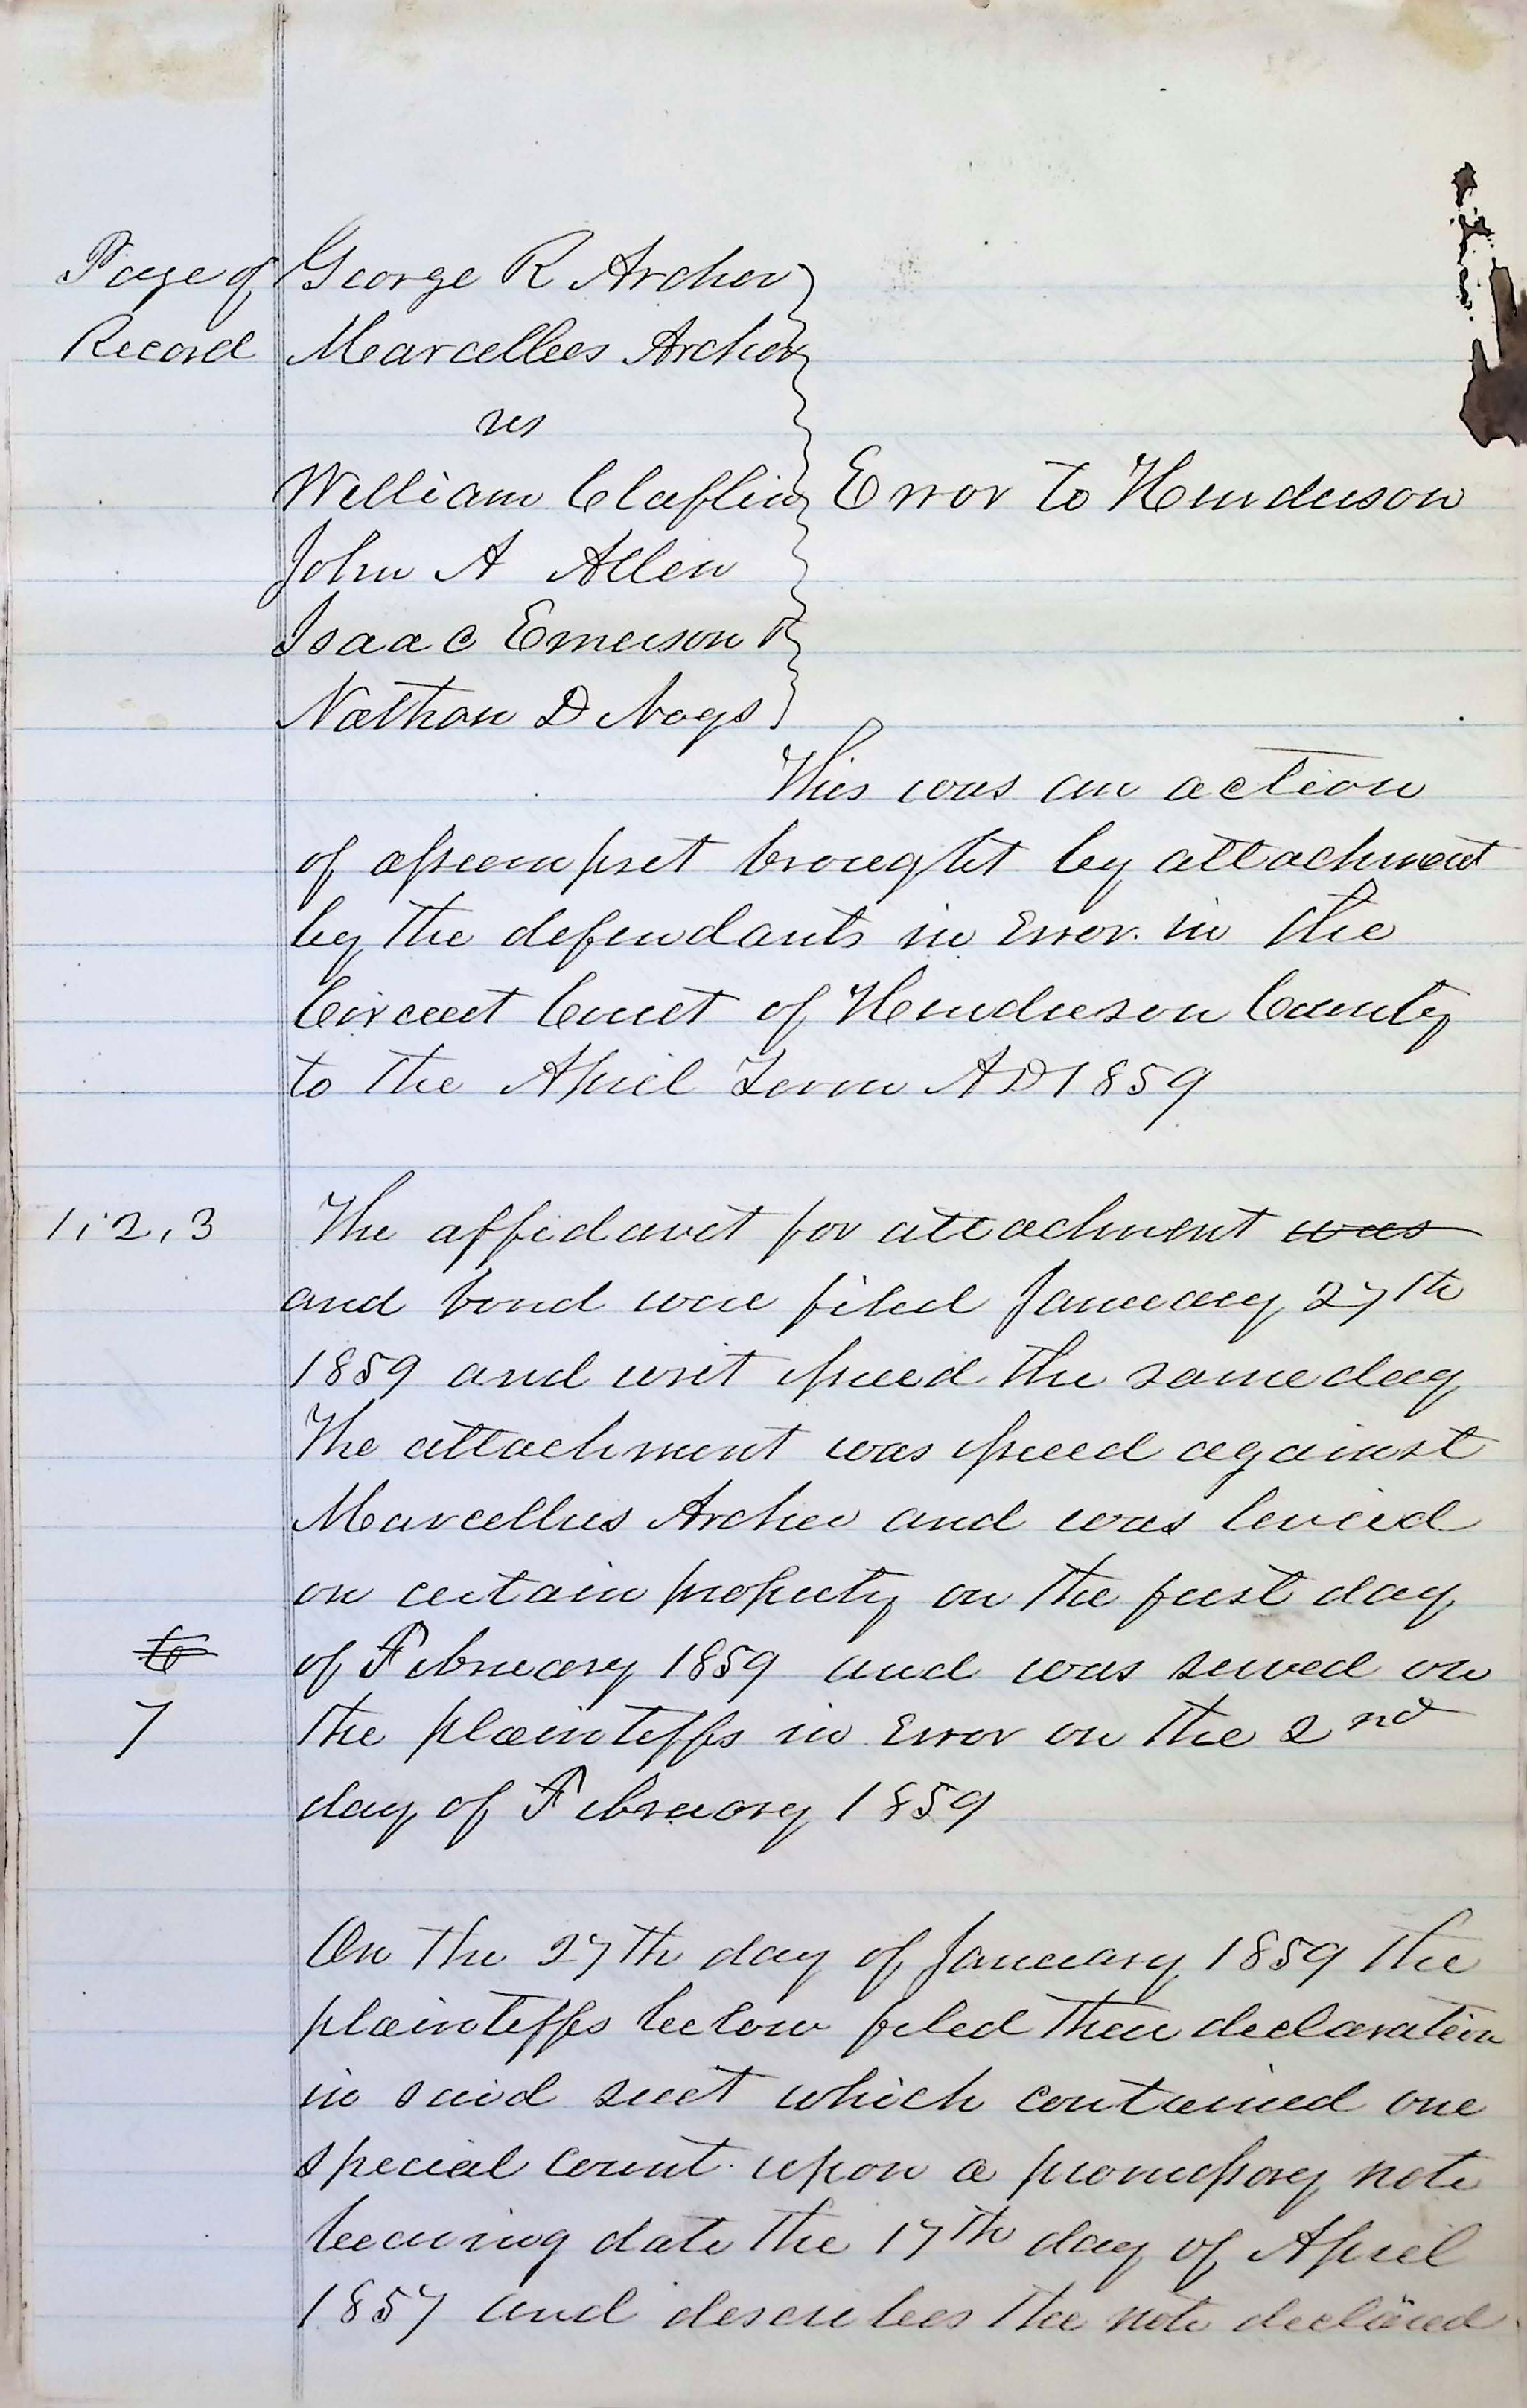 Page of
Record
George R Archer
Marcellus Archer
vs
William Claflin
John A Allen
Isaac Emerson &
Nathan D Noys
Error to Henderson
This was an action
of assumpsit brought by attachment
by the defendants in Error in the
Circuit Court of Henderson County
to the April Term AD 1859
1, 2, 3
The affidavit for attachment was
and bond were filed January 27th
1859 and writ issued the same day
The attachment was issued against
Marcellus Archer and was levied
on certain property on the first day
to
of February 1859 and was served on
7
the plaintiffs in Error on the 2nd
day of February 1859
On the 27th day of January 1859 the
plaintiffs below filed their declaration
in said suit which contained one
special count upon a promissory note
bearing date the 17th day of April
1857 and describes the note declared